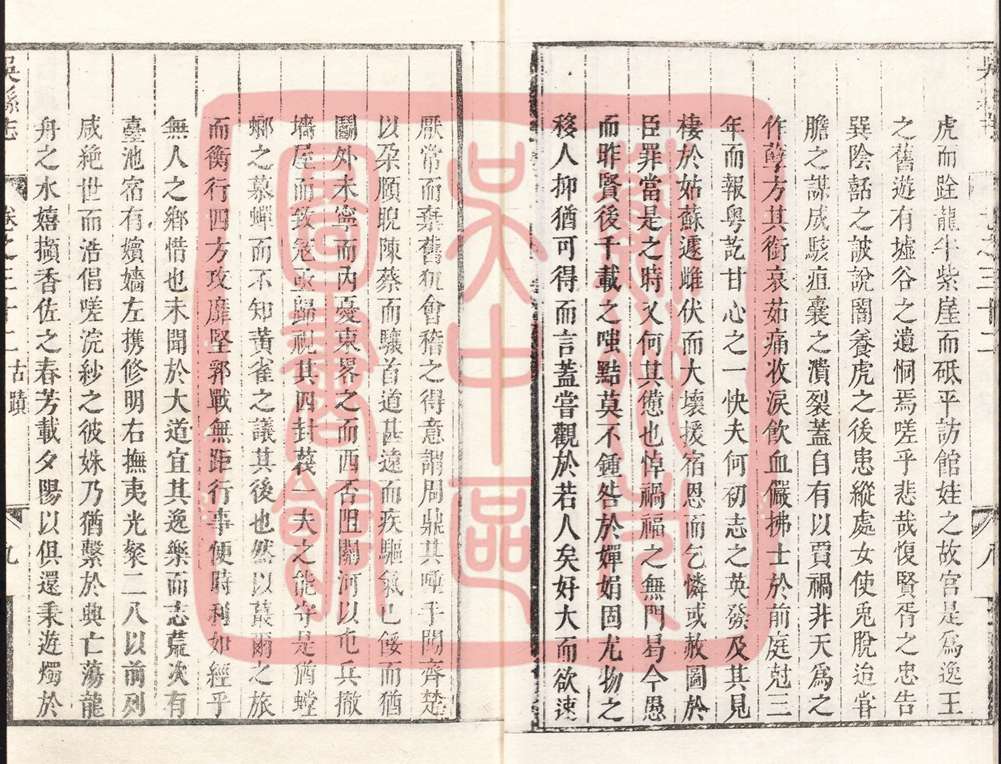 虎而跧龍牛紫崖而砥平訪館娃之故宮是爲逸王
之舊遊有墟谷之遺恫焉嗟乎悲哉愎賢胥之忠告
巽陰嚭之詖說闇養虎之後患縱處女使兎脫迨甞
膽之謀成駭疽囊之潰裂蓋自有以賈禍非天爲之
作孽方其銜哀茹痛收淚飮血儼拂士於前庭尅三
年而報粤訖甘心之一快夫何初志之英發及其見
棲於姑蘇遽雌伏而大壞援宿恩而乞憐或赦圖於
臣罪當是之時又何其憊也悼禍福之無門曷今愚
而昨賢後千載之嗤黠莫不鍾咎於嬋娟固尤物之
移人抑猶可得而言蓋嘗觀於若人矣好大而欲速
厭常而棄舊狃會稽之得意謂周鼎其唾手闖齊楚
以朶頤睨陳蔡而驤首道甚遠而疾驅氣已餒而猶
鬭外未寧而內憂東畧之而西否阻關河以屯兵撤
墻屋而致寇改歸視其四封茷一夫之能守是猶螳
螂之慕蟬而不知黃雀之議其後也然以蕞爾之旅
而衡行四方攻靡堅郛戰無距行事便時利如經乎
無人之鄕惜也未聞於大道宜其逸樂而志荒次有
臺池宿有嬪嬙左攜修明右撫夷光粲二八以前列
咸絶世而浩倡嗟浣紗之彼姝乃猶繫於興亡蕩龍
舟之水嬉擷香佐之春芳載夕陽以俱還秉遊燭於
吳縣志
卷之三十二
古蹟
九